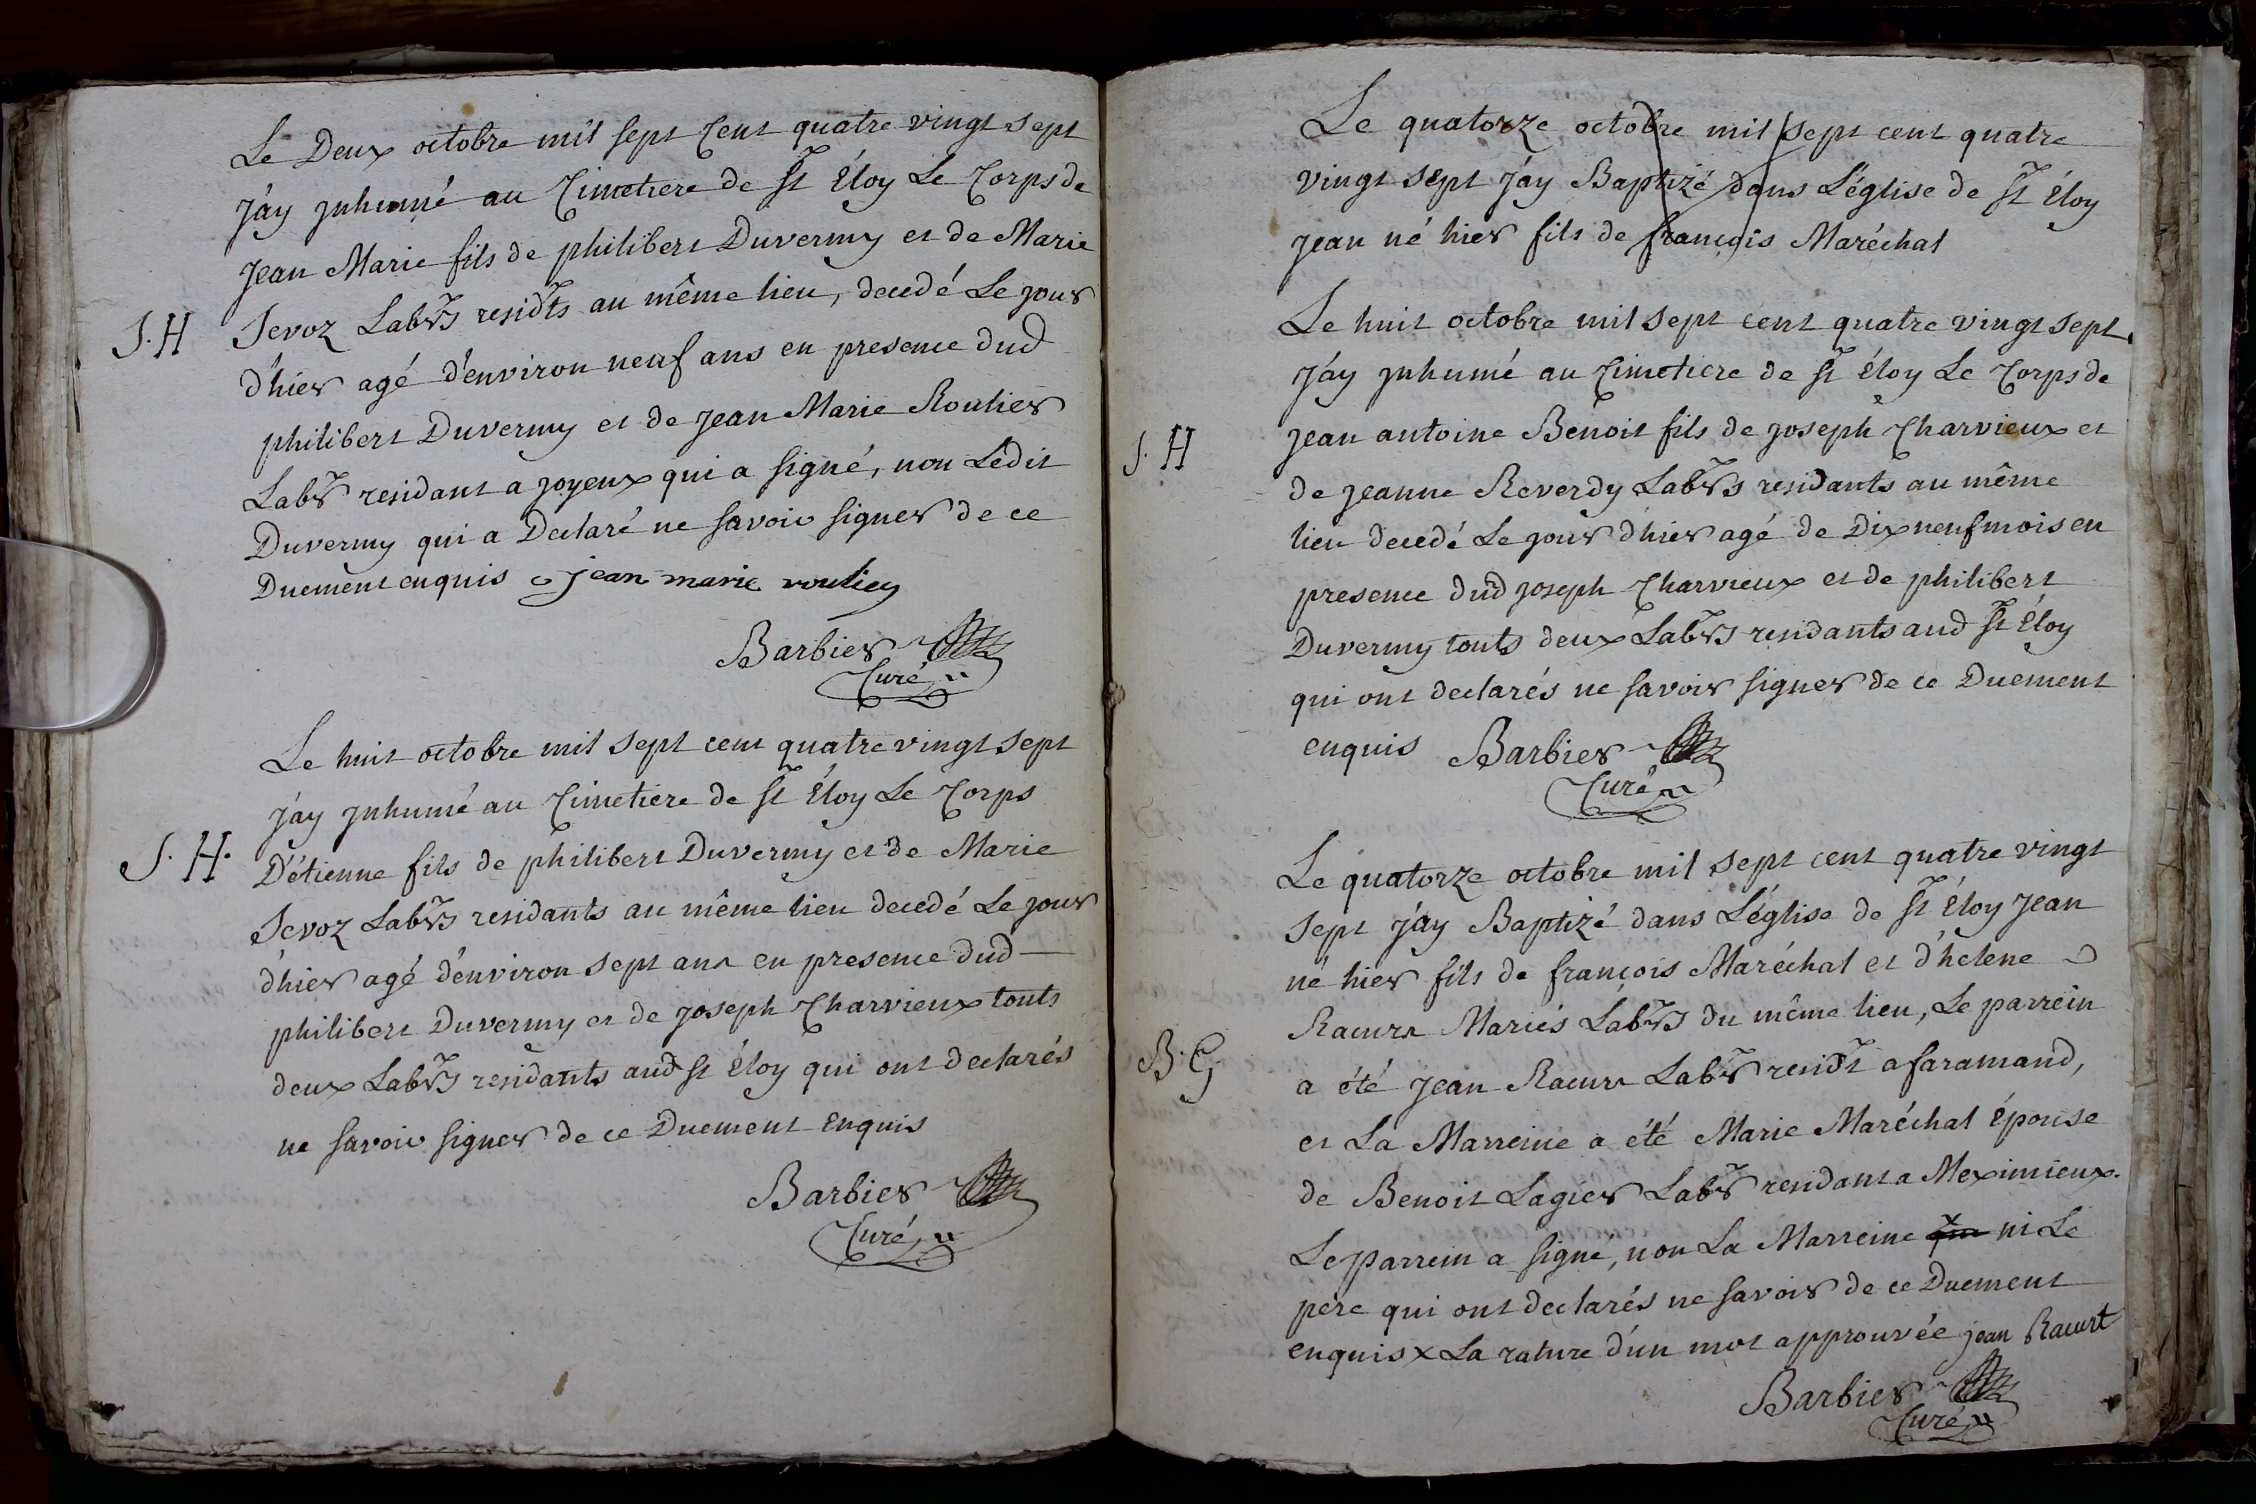 Le Deux octobre mil sept Cent quatre vingt sept
j'ay jnhumé au Cimetiere de St Éloy Le Corps de
jean Marie fils de philibert Duvermy et de Marie
J. H
Jevoz Labrs residts au même lieu, decedé Le jour
d'hier agé d'environ neuf ans en presence dud
philibert Duvermy et de jean Marie Roulier
Labr residant a joyeux qui a signé, non Ledit
Duvermy qui a Declaré ne savoir signer de ce
Duement enquis jean marie roulier
Barbier
Curé
Le huit octobre mil sept cent quatre vingt sept
j'ay jnhumé au Cimetiere de St Éloy Le Corps
J. H.
D'étienne fils de philibert Duvermy et de Marie
Jevoz Labrs residants au même lieu decedé Le jour
d'hier agé d'environ sept ans en presence dud
philibert Duvermy et de joseph Charvieux touts
deux Labrs residants aud St Éloy qui ont declarés
ne savoir signer de ce Duement Enquis
Barbier
Curé
Le quatorze octobre mil sept cent quatre
vingt sept j'ay Baptizé dans L'église de St Éloy
jean né hier fils de françois Maréchal
Le huit octobre mil sept cent quatre vingt sept
j'ay jnhumé au Cimetiere de St Éloy Le Corps de
J. H
jean antoine Benoit fils de joseph Charvieux et
de jeanne Reverdy Labrs residants au même
lieu decedé Le jour d'hier agé de Dix neuf mois en
presence dud joseph Charvieux et de philibert
Duvermy touts deux Labrs residants aud St Éloy
qui ont declarés ne savoir signer de ce Duement
enquis Barbier
Curé
Le quatorze octobre mil sept cent quatre vingt
sept j'ay Baptizé dans L'église de St Éloy jean
né hier fils de françois Maréchal et d'helene
Racurt Mariés Labrs du même lieu, Le parrein
B. G
a été jean Racurt Labr residt a faramand,
et La Marreine a été Marie Maréchal Épouse
de Benoit Lagier Labr residant a Meximieux.
Le parrein a signé, non La Marreine x qui ni Le
pere qui ont declarés ne savoir de ce Duement
enquis x La rature d'un mot approuvée jean Racurt
Barbier
Curé